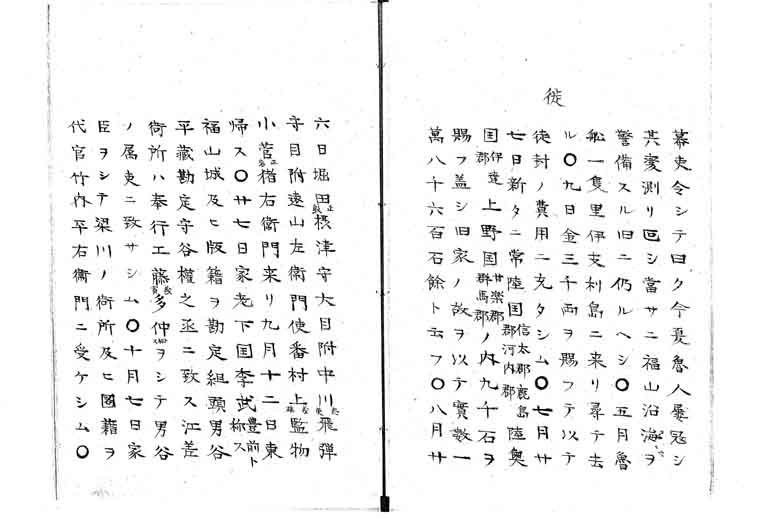 徙
幕吏令シテ曰ク今夏魯人屢冦シ
其変測リ叵シ當サニ福山沿海ヲ
警備スル旧ニ仍ルヘシ〇五月魯
舩一隻里伊支利島ニ来リ尋テ去
ル〇九日金三千両ヲ賜フテ以テ
徙封ノ費用ニ充タシム〇七月廿
七日新タニ常陸国信太郡鹿島郡河内郡陸奥
国伊達郡上野国甘楽郡群馬郡ノ内九千石ヲ
賜フ盖シ旧家ノ故ヲ以テ實數一
萬八千六百石餘ト云フ〇八月廿
六日堀田正敦摂津守大目附中川忠英飛彈
守目附遠山左衛門使番村上監物
小菅正容猪右衛門来リ九月十二日東
帰ス〇廿七日家老下国季武豊前ト称ス
福山城及ヒ版籍ヲ勘定組頭男谷
平蔵勘定守谷權之丞ニ致ス江差
衙所ハ奉行工藤多仲ヲシテ男谷
ノ属吏ニ致サシム〇十月七日家
臣ヲシテ梁川ノ衙所及ヒ圖籍ヲ
代官竹内平右衛門ニ受ケシム〇